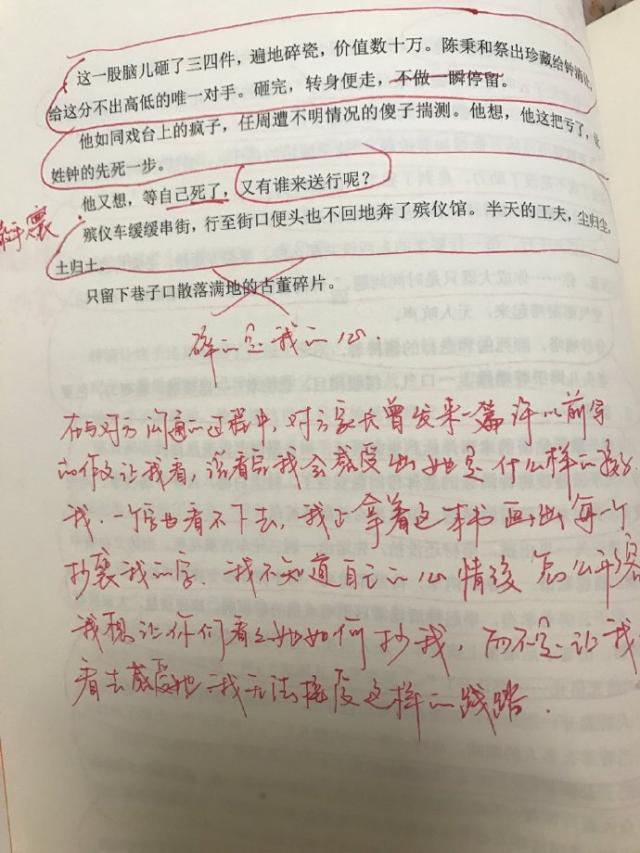 这一股脑儿砸了三四件，遍地碎瓷，价值数十万。陈秉和祭出珍藏给钟
给这分不出高低的唯一对手。砸完，转身便走，不做一瞬停留。
他如同戏台上的疯子，任周遭不明情况的傻子揣测。他想，他这把亏了，
姓钟的先死一步。
他又想，等自己死了，又有谁来送行呢？
殡仪车缓缓串街，行至街口便头也不回地奔了殡仪馆。半天的工夫，尘归尘，
土归土。
只留下巷子口散落满地的古董碎片。
碎的是我的心.
在与对方沟通的过程中，对方家长曾发来一篇许以前写
的作文让我看，说看完我会感受出她是什么样的孩子
我.一个字也看不下去，我正拿着这本书画出每一个
抄袭我的字.我不知道自己的心情该怎么平
我想让你们看看她如何抄我，而不是让我
看去感受她 我无法接受这样的践踏.